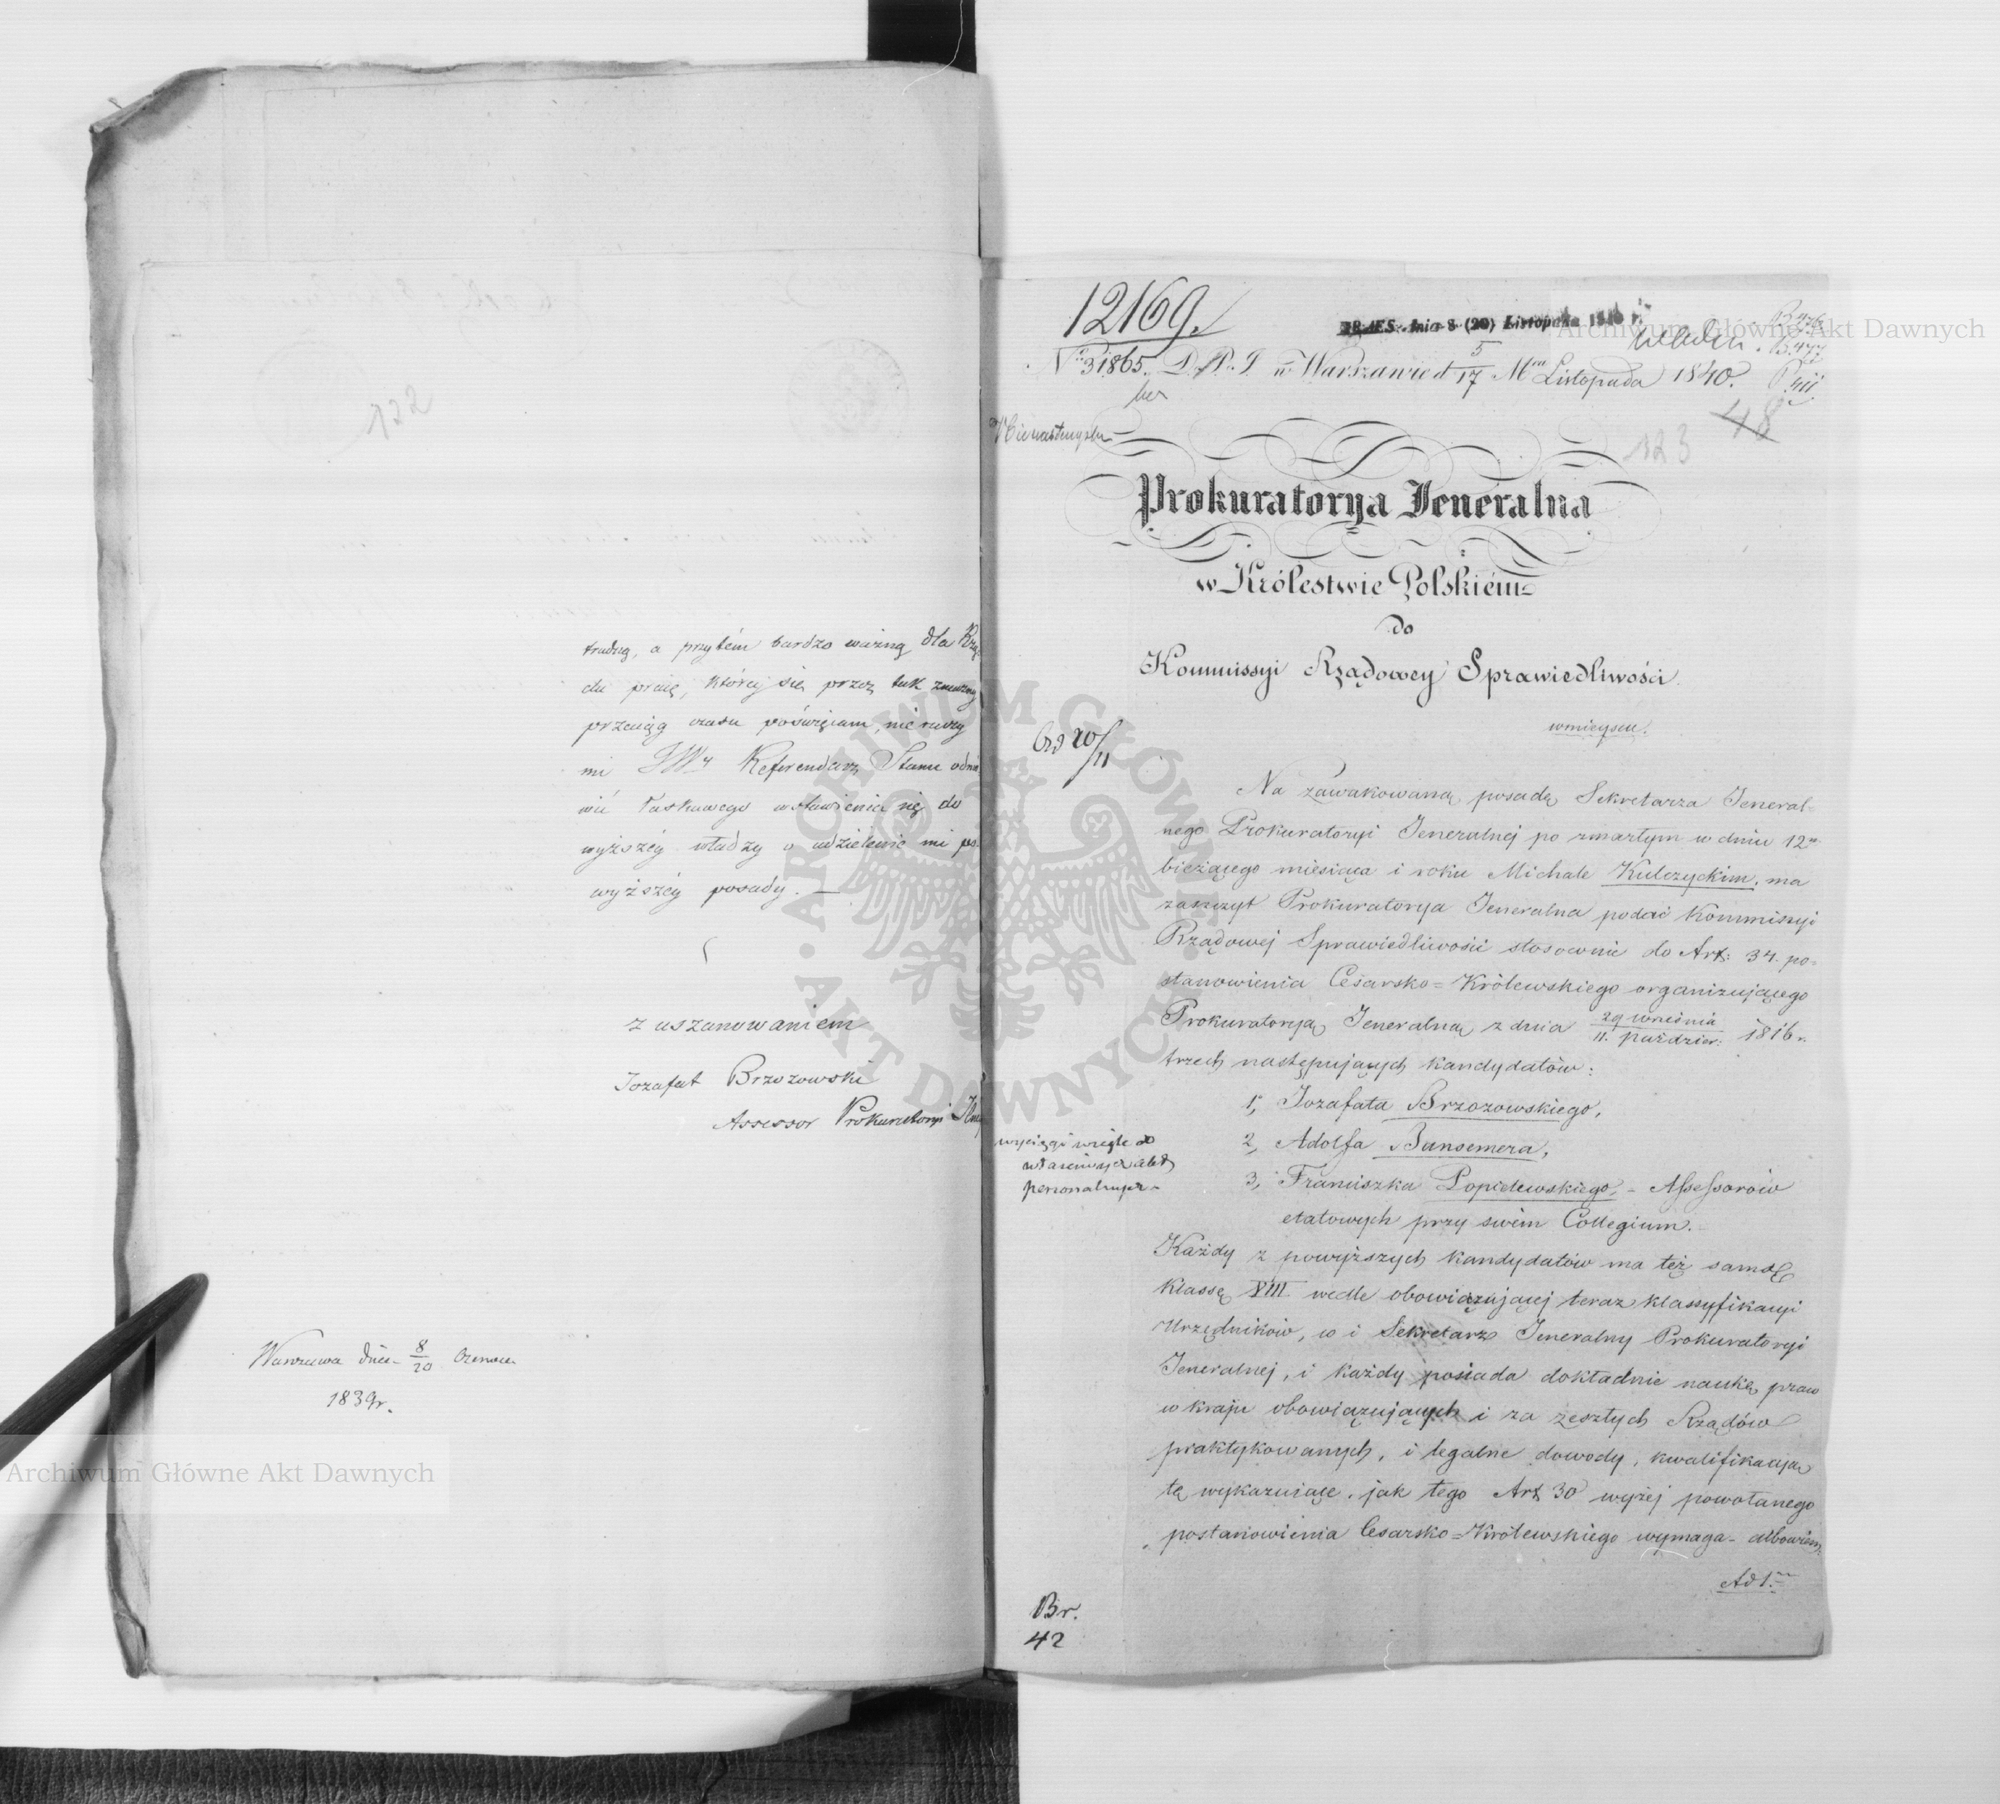 122
trudną, a przytém bardzo ważną dla Rzą-
du pracę, któréj się przez tak znaczny
przeciąg czasu poświęcam, nie raczy
mi JWy Referendarz Stanu odmó-
wić łaskawego wstawienia się do
wyższéj władzy o udzielenie mi po-
wyższéj posady. —
z uszanowaniem
Jozafat Brzozowski
Assessor Prokuratoryi
Warszawa dnia 8/20 Czerwca
1839 r.
12169.
PRAES. dnia 8 (20) Listopada 1840 r.
B.476
B.477
No 31865. D.P.I w Warszawie d 5/17 Mca Listopada 1840.
48
123
Prokuratorya Jeneralna
w Królestwie Polskiém
do
Kommissyi Rządowey Sprawiedliwości
w mieyscu.
20/11
Na zawakowaną posadę Sekretarza Jeneral-
nego Prokuratoryi Jeneralnej po zmarłym w dniu 12m
bieżącego miesiąca i roku Michale Kulczyckim, ma
zaszczyt Prokuratorya Jeneralna podać Kommissyi
Rządowej Sprawiedliwości stosownie do Art: 34. po-
stanowienia Cesarsko=Królewskiego organizującego
Prokuratoryą Jeneralną z dnia 29 września / 11. paździer: 1816 r.
trzech następujących kandydatów:
1, Jozafata Brzozowskiego,
2, Adolfa Bansemera,
3, Franciszka Popielewskiego, - Assessorów
etatowych przy swém Collegium.
wyciągi wzięte do
właściwych akt
personalnych
Każdy z powyższych kandydatów ma też samą
klassę VIII wedle obowiązującej teraz klassyfikacyi
Urzędników, co i Sekretarz Jeneralny Prokuratoryi
Jeneralnej, i każdy posiada dokładnie naukę praw
w kraju obowiązujących i za zeszłych Rządów
praktykowanych, i legalne dowody, kwalifikacją
tę wykazujące, jak tego Art 30 wyżej powołanego
postanowienia Cesarsko=Królewskiego wymaga - albowiem:
Ad 1.
Br.
42
Archiwum Główne Akt Dawnych
Archiwum Główne Akt Dawnych
ARCHIWUM GŁÓWNE AKT DAWNYCH